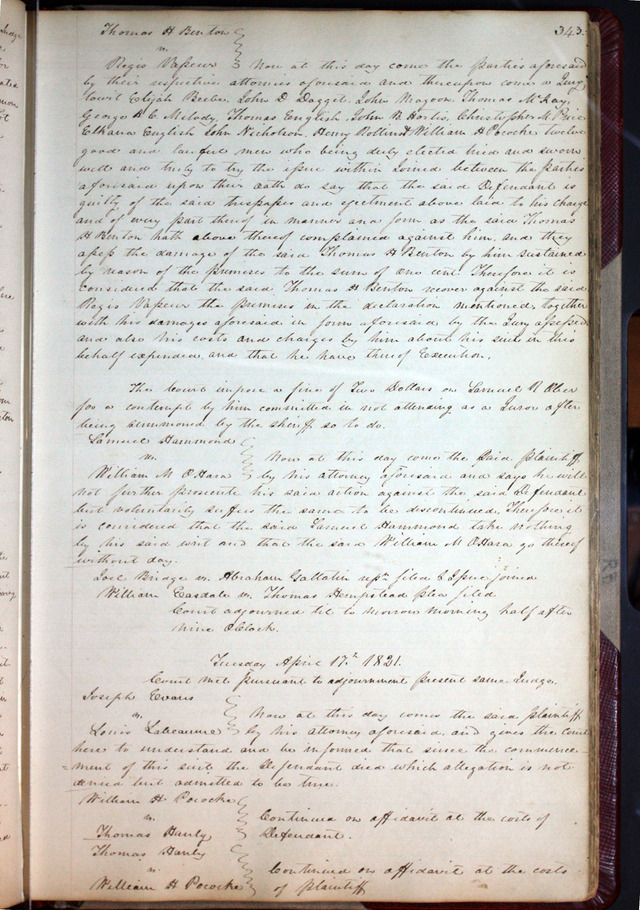 343.
Thomas H Benton
vs.
Regis Vasseur Now at this day come the parties aforesaid
by their respective attornies aforesaid and thereupon came a Jury
towit Elijah Beebe, John D Dagget, John Magoon, Thomas McKay,
George H C Melody, Thomas English, John B Hortis, Christopher M Price
Elkana English John Nicholson, Henry Rollins & William H Pococke twelve
good and lawful men who being duly elected tried and sworn
well and truly to try the issue within Joined between the parties
aforesaid upon their oath do say that the said Defendant is
guilty of the said trespass and ejectment above laid to his charge
and of every part thereof in manner and form as the said Thomas
H Benton hath above thereof complained against him, and they
assess the damage of the said Thomas H Benton by him sustained
by reason of the premises to the sum of one cent. Therefore it is
considered that the said Thomas H Benton recover against the said
Regis Vasseur the premises in the declaration mentioned, together
with his damages aforesaid in form aforesaid by the Jury assessed
and also his costs and charges by him about his suit in this
behalf expended and that he have thereof Execution.
The Court impose a fine of Two Dollars on Samuel R Ober
for a contempt by him committed in not attending as a Juror after
being summoned by the sheriff so to do.
Samuel Hammond
vs.
William M O.Hara Now at this day come the said plaintiff
by his attorney aforesaid and says he will
not further prosecute his said action against the said Defendant
but voluntarily suffers the same to be discontinued. Therefore it
is considered that the said Samuel Hammond take nothing
by his said writ and that the said William M O.Hara go thereof
without day.
Joel Bridge vs. Abraham Gallatin repn. filed & Issue joined
William Easdale vs. Thomas Hempstead plea filed
Court adjourned til to morrow morning half after
nine OClock.
Tuesday April 17th 1821.
Court met pursuant to adjournment present same Judge.
Joseph Evans
vs.
Louis Labeaume Now at this day comes the said plaintiff
by his attorney aforesaid, and gives the Court
here to understand and be informed that since the commence-
=ment of this suit the Defendant died which allegation is not
denied but admitted to be true.
William H Pococke
vs.
Thomas Hanly Continued on affidavit at the costs of
Defendant.
Thomas Hanly
vs.
William H Pococke Continued on affidavit at the costs
of plaintiff